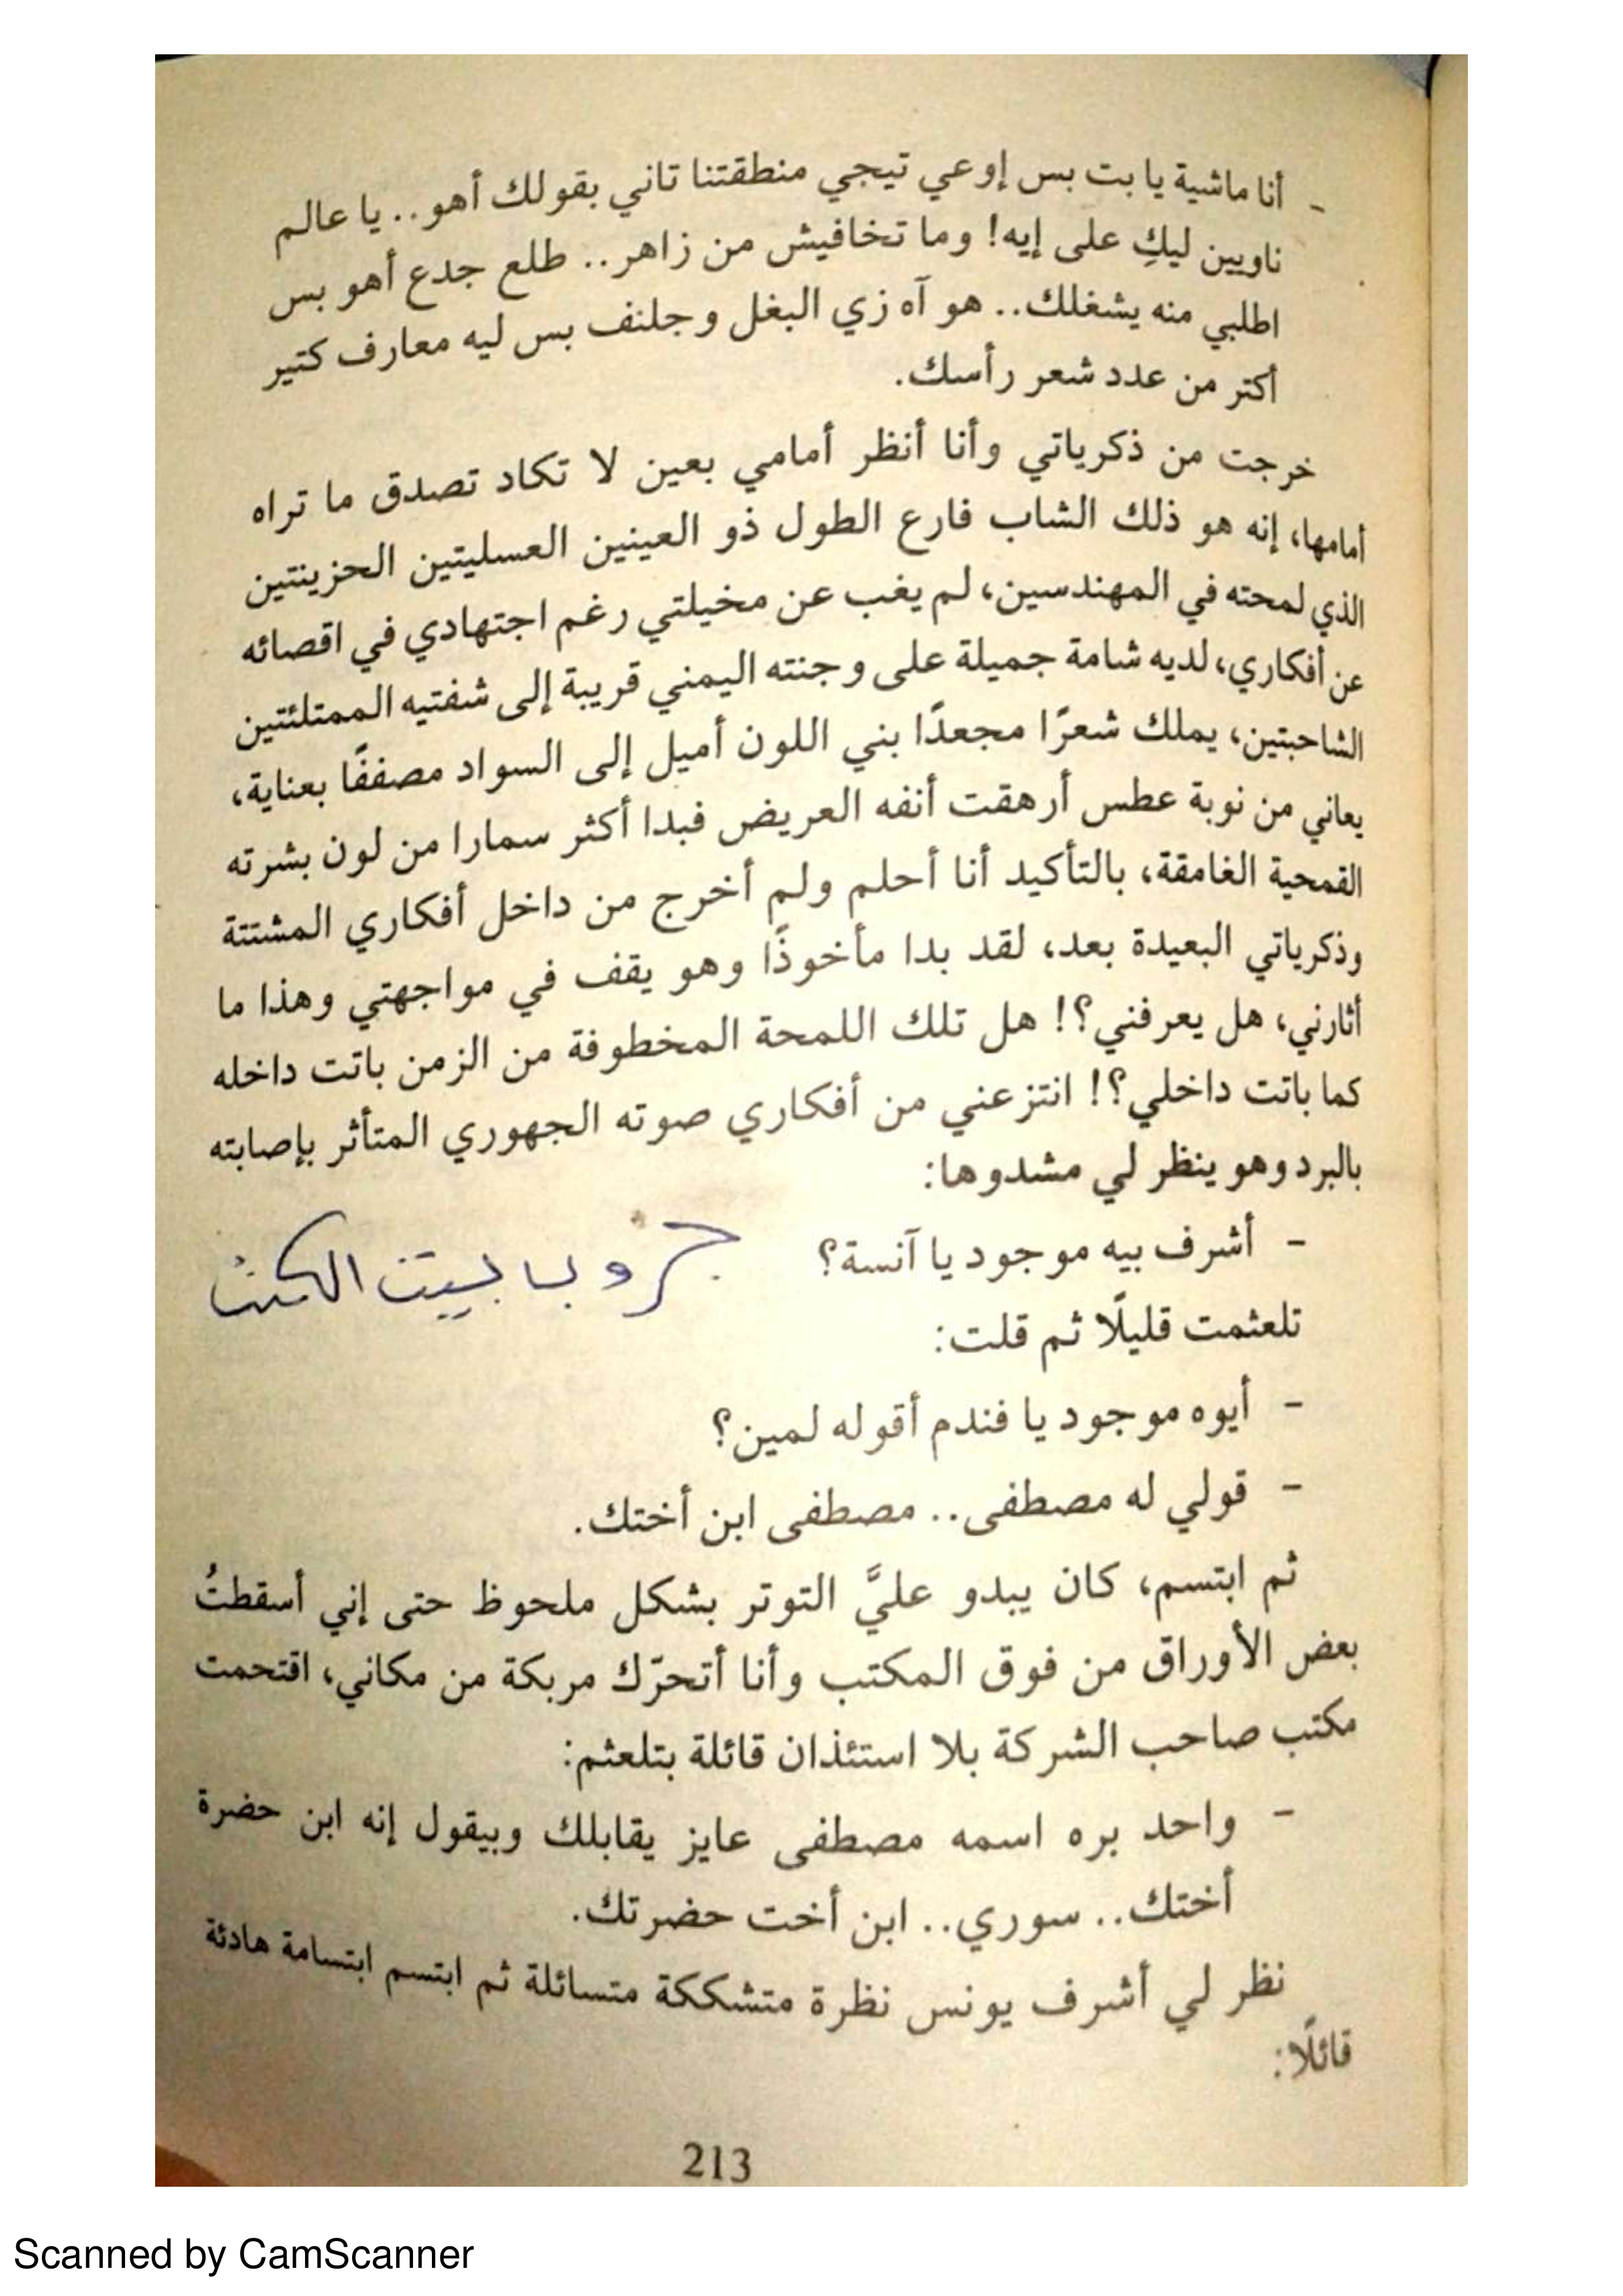 - أنا ماشية يا بت بس إوعي تيجي منطقتنا تاني بقولك أهو.. يا عالم
ناويين ليكِ على إيه! وما تخافيش من زاهر.. طلع جدع أهو بس
اطلبي منه يشغلك.. هو آه زي البغل وجلنف بس ليه معارف كتير
أكتر من عدد شعر رأسك.
خرجت من ذكرياتي وأنا أنظر أمامي بعين لا تكاد تصدق ما تراه
أمامها، إنه هو ذلك الشاب فارع الطول ذو العينين العسليتين الحزينتين
الذي لمحته في المهندسين، لم يغب عن مخيلتي رغم اجتهادي في اقصائه
عن أفكاري، لديه شامة جميلة على وجنته اليمني قريبة إلى شفتيه الممتلئتين
الشاحبتين، يملك شعرًا مجعدًا بني اللون أميل إلى السواد مصففًا بعناية،
يعاني من نوبة عطس أرهقت أنفه العريض فبدا أكثر سمارا من لون بشرته
القمحية الغامقة، بالتأكيد أنا أحلم ولم أخرج من داخل أفكاري المشتتة
وذكرياتي البعيدة بعد، لقد بدا مأخوذًا وهو يقف في مواجهتي وهذا ما
أثارني، هل يعرفني؟! هل تلك اللمحة المخطوفة من الزمن باتت داخله
كما باتت داخلي؟! انتزعني من أفكاري صوته الجهوري المتأثر بإصابته
بالبرد وهو ينظر لي مشدوها:
- أشرف بيه موجود يا آنسة؟
جروب بيت الكتب
تلعثمت قليلًا ثم قلت:
- أيوه موجود يا فندم أقوله لمين؟
- قولي له مصطفى.. مصطفى ابن أختك.
ثم ابتسم، كان يبدو عليَّ التوتر بشكل ملحوظ حتى إني أسقطتُ
بعض الأوراق من فوق المكتب وأنا أتحرّك مربكة من مكاني، اقتحمت
مكتب صاحب الشركة بلا استئذان قائلة بتلعثم:
- واحد بره اسمه مصطفى عايز يقابلك وبيقول إنه ابن حضرة
أختك.. سوري.. ابن أخت حضرتك.
نظر لي أشرف يونس نظرة متشككة متسائلة ثم ابتسم ابتسامة هادئة
قائلًا:
213
Scanned by CamScanner